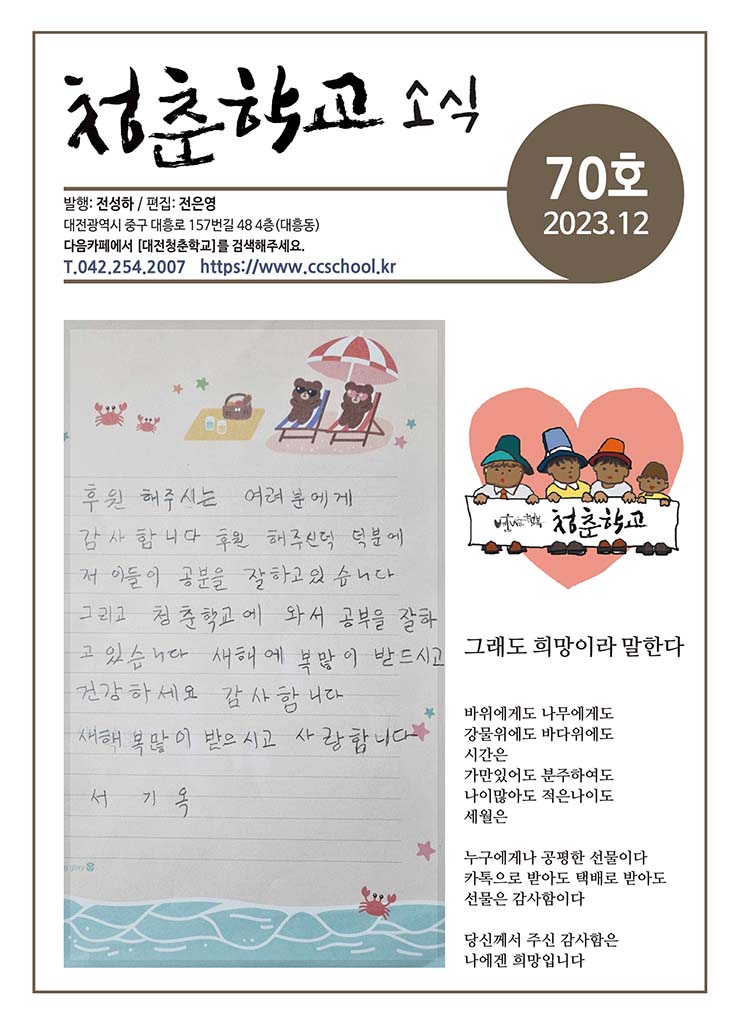 청춘학교 소식
70호
2023.12
발행: 전성하 / 편집: 전은영
대전광역시 중구 대흥로 157번길 48 4층(대흥동)
다음카페에서 [대전청춘학교]를 검색해주세요.
T.042.254.2007 https://www.ccschool.kr
후원 해주시는 여러분에게
감사합니다 후원 해주신덕 덕분에
저 이들이 공분을 잘하고있습니다
그리고 청춘핵교에 와서 공부을 잘하
고있습니다 새해에 복많이 받드시고
건강하세요 감사합니다
새핵 복많이 받으시고 사랑합니다
서기옥
청춘학교
그래도 희망이라 말한다
바위에게도 나무에게도
강물위에도 바다위에도
시간은
가만있어도 분주하여도
나이많아도 적은나이도
세월은
누구에게나 공평한 선물이다
카톡으로 받아도 택배로 받아도
선물은 감사함이다
당신께서 주신 감사함은
나에겐 희망입니다